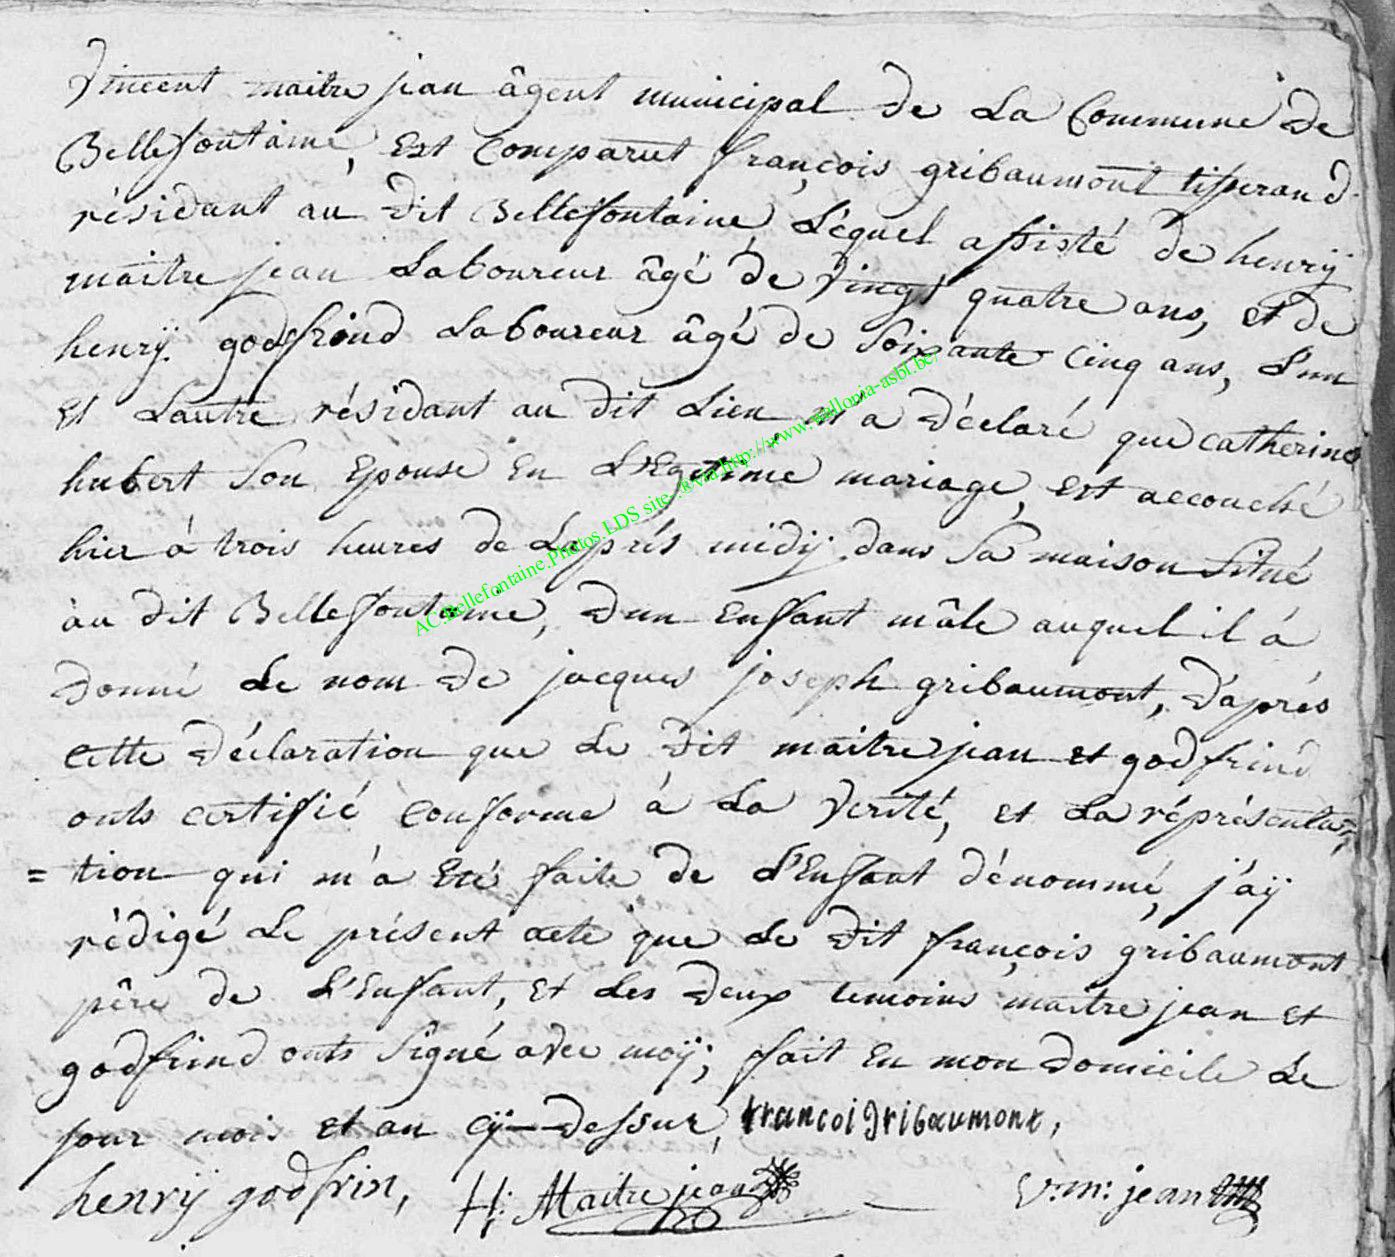 Vincent maitre jean âgent municipal de La Commune de
Bellefontaine, Est Comparut françois gribaumont tisserand
résidant au dit Bellefontaine, Léquel assisté de henrÿ
maitre jean Laboureur âgé de Vingt quatre ans, et de
henrÿ godfrind Laboureur âgé de Soixante Cinq ans, L'un
Et Lautre résidant au dit Lieu, et a Déclaré que catherine
hubert Son Epouse En LEgitime mariage, Est accouché
hier à trois heures de Laprés midÿ dans Sa maison Situé
àu dit Bellefontaine, Dun Enfant mâle auquel il à
Donné Le nom De jacques joseph gribaumont, D'aprés
cette Déclaration que Le Dit maitre jean et godfrind
onts certifié conforme à La Verité, et La réprésenta-
= tion qui m'a Eté faite de L'Enfant dénommé, j'aÿ
rédigé Le présent acte que Le Dit françois gribaumont
pêre de L'Enfant, Et Les Deux temoins maitre jean et
godfrind onts Signé avec moÿ; fait En mon Domicile Le
jour mois et an cÿ-Dessur, francoi gribaumont,
henrÿ godfrin, H: Maitrejean V: m: jean
AC.Bellefontaine.Photos.LDS site.®via.http://www.wallonia-asbl.be/